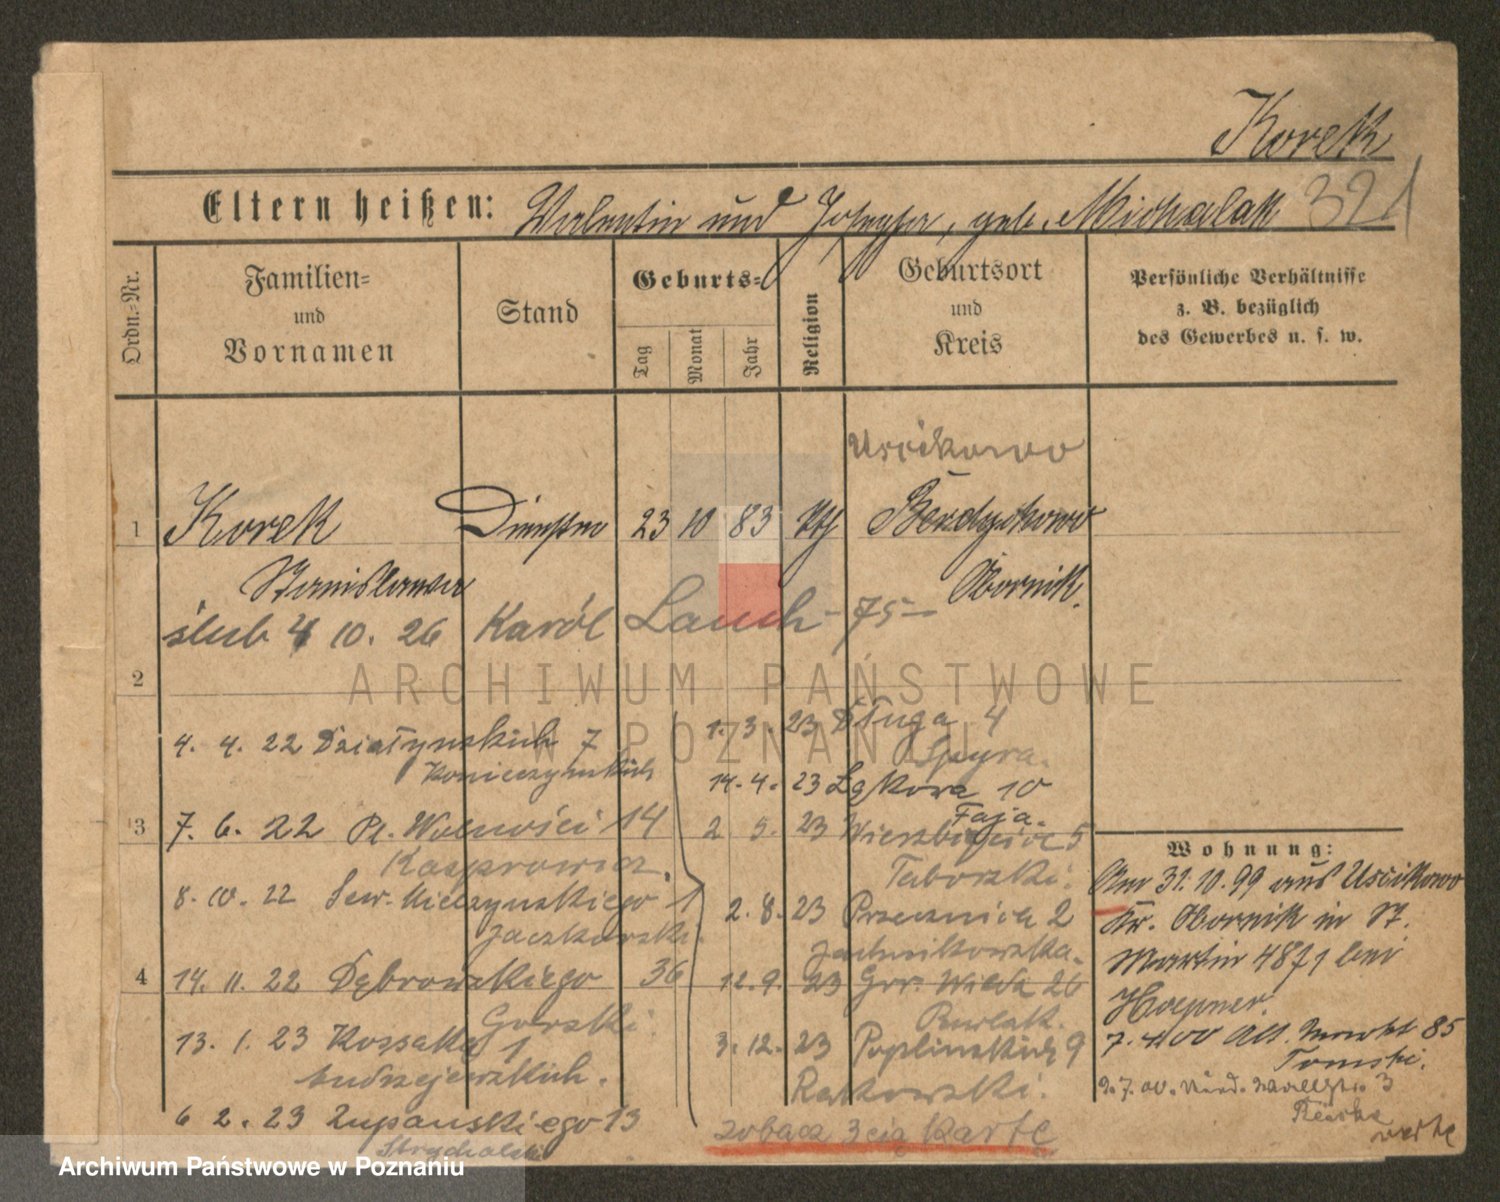 Korek
Eltern heißen: Valentin und Josepha, geb. Michalak 321
Ordn.-Nr.
Familien-
und
Vornamen
Stand
Geburts-
Tag
Monat
Jahr
Religion
Geburtsort
und
Kreis
Persönliche Verhältnisse
z. B. bezüglich
des Gewerbes u. s. w.
Uscikowo
1 Korek 23 10 83 Kth
Stanislawa Obornik.
ślub 4 10. 26 Karól Lauch - 75-
2
4. 4. 22 Działynskich 7
Konieczynskich
3 7. 6. 22 Pl. Wolności 14
Kasprowicz.
8. 10. 22 Sew. Mielzynskiego 1
Jaczkowski.
4 14. 11. 22 Dąbrowskiego 36
Gorski.
13. 1. 23 Kossaka 1
Andrzejewskich.
6 2. 23 Zupanskiego 13
Strychalski
1. 3. 23 Długa 4
Spyra.
14. 4. 23 Łąkowa 10
Faja.
2 5. 23 Wierzbięcice 5
Taborski.
2. 8. 23 Przecznica 2
Jachnikowska.
12. 9. 23 Grr. Wilda 26
Burlak.
3. 12. 23 Poplinskich 9
Ratkowski.
zobacz 3cią Kartę
Wohnung:
Am 31. 10. 99 aus Uscikowo
Kr. Obornik in St.
Martin 48 I bei
Hoepner.
7. 4. 00 Alt. Markt 85
Tomski.
2. 7. 00. Nied. Wallstr. 3
verte
ARCHIWUM PAŃSTWOWE
W POZNANIU
Archiwum Państwowe w Poznaniu